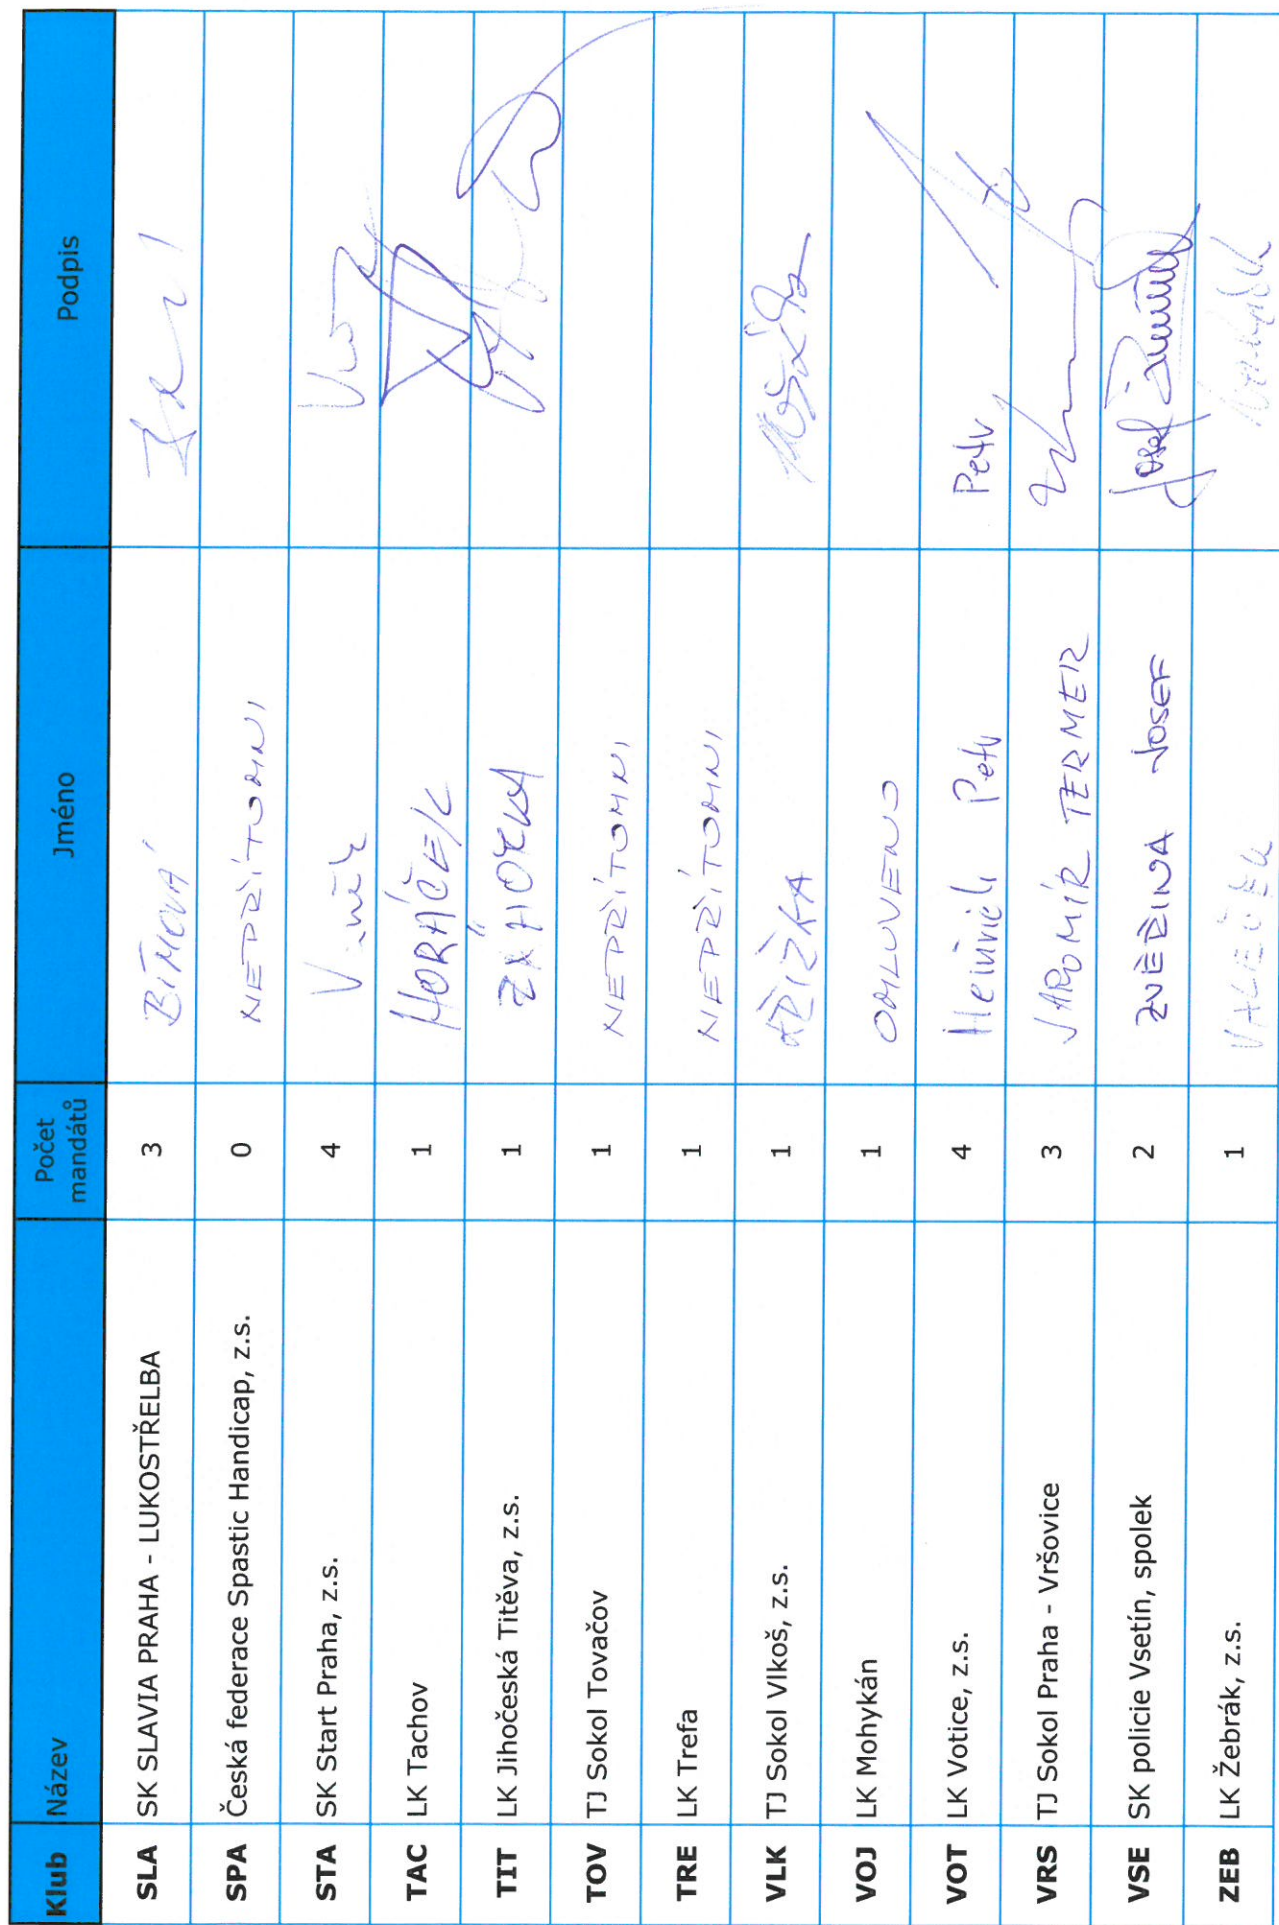 Klub Název Počet mandátů Jméno Podpis
SLA SK SLAVIA PRAHA - LUKOSTŘELBA 3
SPA Česká federace Spastic Handicap, z.s. 0 NEPŘÍTOMNI
STA SK Start Praha, z.s. 4
TAC LK Tachov 1 HORÁČEK
TIT LK Jihočeská Titěva, z.s. 1 ZÁHORKA
TOV TJ Sokol Tovačov 1 NEPŘÍTOMNI
TRE LK Trefa 1 NEPŘÍTOMNI
VLK TJ Sokol Vlkoš, z.s. 1 KŘIŽKA
VOJ LK Mohykán 1 OMLUVENO
VOT LK Votice, z.s. 4 Heinrich Petr Petr
VRS TJ Sokol Praha - Vršovice 3 JAROMÍR TERMER
VSE SK policie Vsetín, spolek 2 ZVĚŘINA JOSEF Josef
ZEB LK Žebrák, z.s. 1 VALEČEK